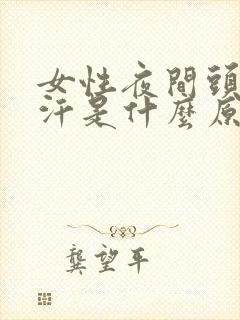 女性夜間頭
汗是什麼原
龔望平